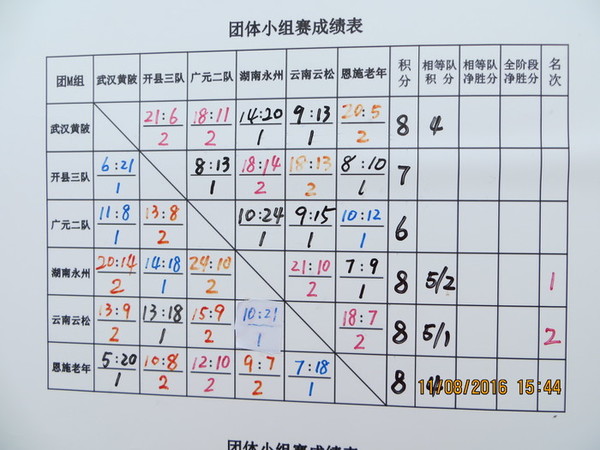 团体小组赛成绩表
团M组 武汉黄陂 开县三队 广元二队 湖南永州 云南云松 恩施老年 积分 相等队积分 相等队净胜分 全阶段净胜分 名次
武汉黄陂 21:6 2 18:11 2 14:20 1 9:13 1 20:5 2 8 4
开县三队 6:21 1 8:13 1 18:14 2 18:13 2 8:10 1 7
广元二队 11:8 1 13:8 2 10:24 1 9:15 1 10:12 1 6
湖南永州 20:14 2 14:18 1 24:10 2 21:10 2 7:9 1 8 5/2 1
云南云松 13:9 2 13:18 1 15:9 2 10:21 1 18:7 2 8 5/1 2
恩施老年 5:20 1 10:8 2 12:10 2 9:7 2 7:18 1 8
11/08/2016 15:44
团体小组赛成绩表